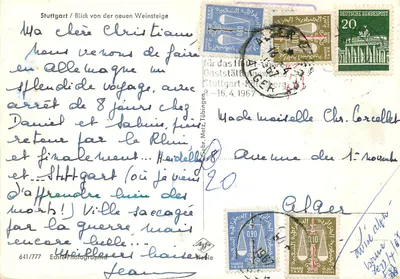 Stuttgart / Blick von der neuen Weinsteige
Ma chère Christiane,
Nous venons de faire
en Allemagne un
splendide voyage, avec
arrêt de 8 jours chez
Daniel et Sabin, puis
retour par le Rhin
et finalement... Heidelberg
et... Stuttgart (où je viens
d'apprendre bien des
morts!) Ville saccagée
par la guerre, mais
encore belle...
Milliers baisers
Jeanne
641/777
Agfa
20
DEUTSCHE BUNDESPOST
für das
Gaststätten
Stuttgart
16.4.1967
ALGER
Mademoiselle Chr. Corcollet
8 Avenue du 1er novembre
20
Alger
0,90
0,10
1967